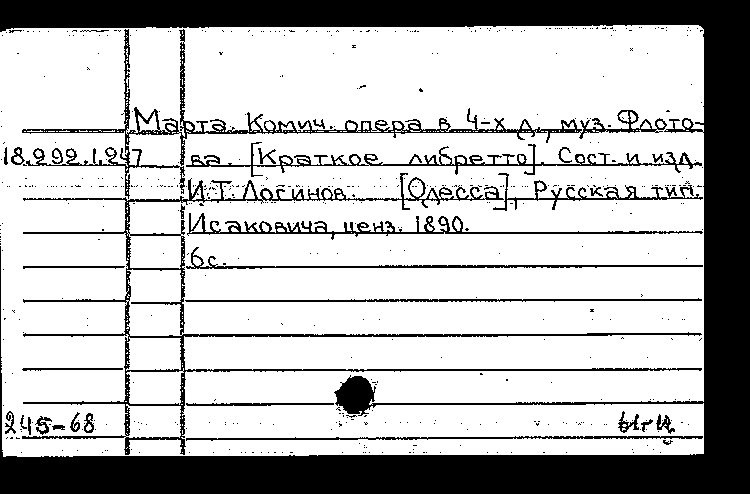 Марта. Комич. опера в 4-х д., муз. Флото-
18.292.1.247 ва. [Краткое либретто]. Сост. и изд.
И.Т. Логинов. [Одесса], Русская тип.
Исаковича, ценз. 1890.
6с.
245-68